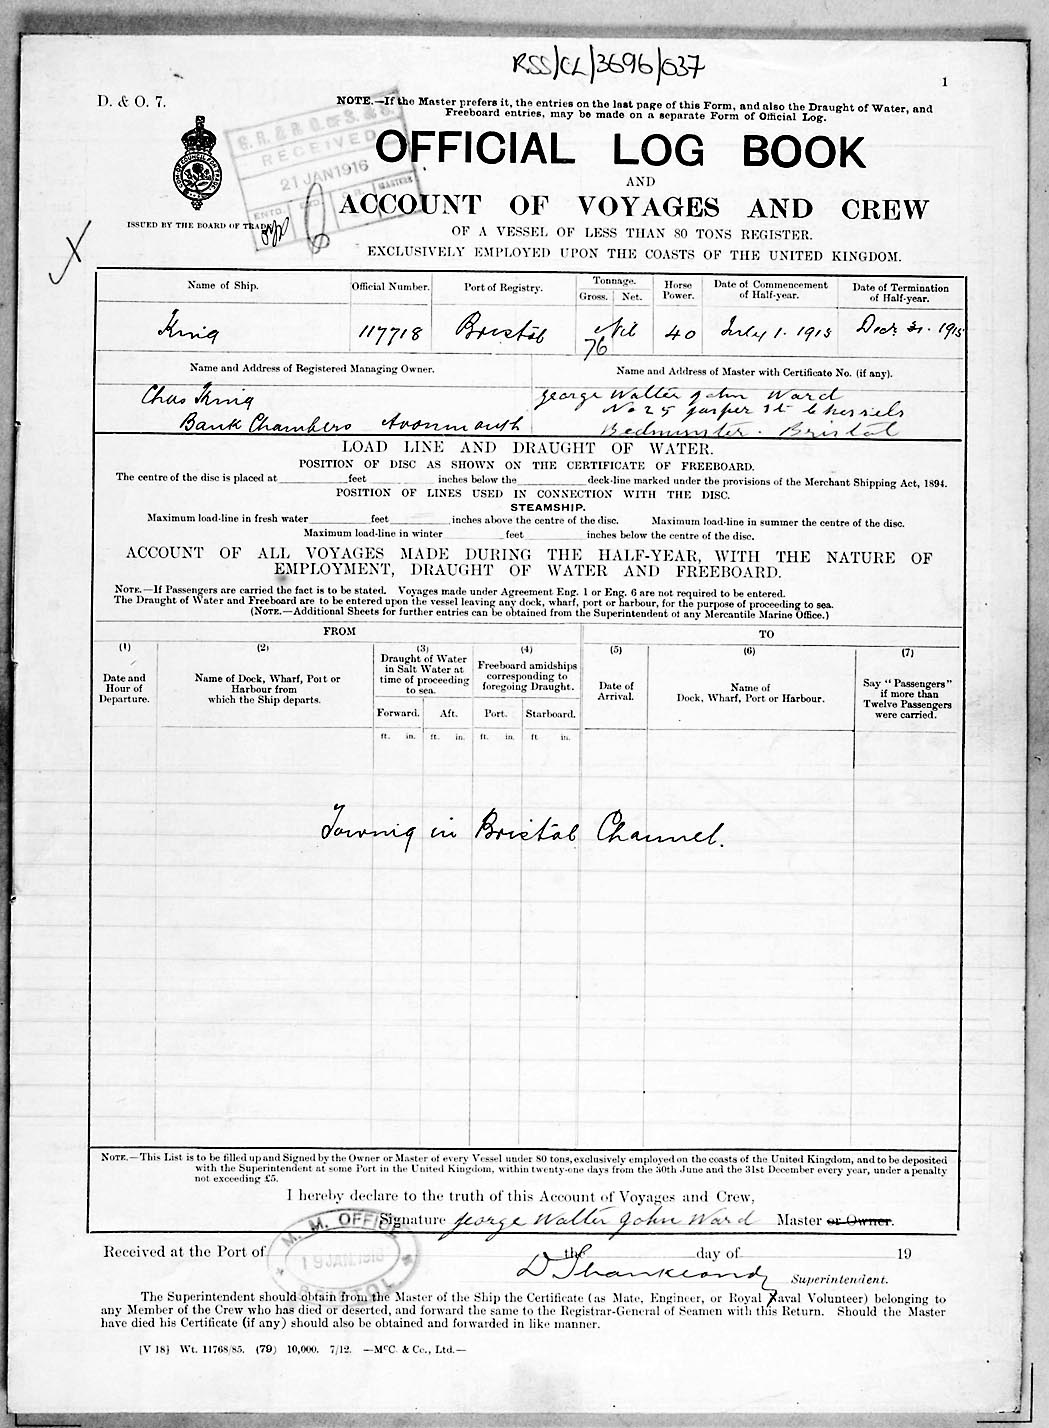 RSS/CL/3696/637
1
D. & O. 7.
NOTE.—If the Master prefers it, the entries on the last page of this Form, and also the Draught of Water, and
Freeboard entries, may be made on a separate Form of Official Log.
RECEIVED
21 JAN 1916
OFFICIAL LOG BOOK
AND
ACCOUNT OF VOYAGES AND CREW
ISSUED BY THE BOARD OF TRADE
OF A VESSEL OF LESS THAN 80 TONS REGISTER.
EXCLUSIVELY EMPLOYED UPON THE COASTS OF THE UNITED KINGDOM.
Name of Ship. Official Number. Port of Registry. Tonnage. Gross. Net. Horse Power. Date of Commencement of Half-year. Date of Termination of Half-year.
King 117718 Bristol 76 Nil 40 July 1. 1915 Decr 31. 1915
Name and Address of Registered Managing Owner. Name and Address of Master with Certificate No. (if any).
Chas King George Walter John Ward
No 25 Jasper St
Bank Chambers Avonmouth Bedminster. Bristol
LOAD LINE AND DRAUGHT OF WATER.
POSITION OF DISC AS SHOWN ON THE CERTIFICATE OF FREEBOARD.
The centre of the disc is placed at feet inches below the deck-line marked under the provisions of the Merchant Shipping Act, 1894.
POSITION OF LINES USED IN CONNECTION WITH THE DISC.
STEAMSHIP.
Maximum load-line in fresh water feet inches above the centre of the disc. Maximum load-line in summer the centre of the disc.
Maximum load-line in winter feet inches below the centre of the disc.
ACCOUNT OF ALL VOYAGES MADE DURING THE HALF-YEAR, WITH THE NATURE OF
EMPLOYMENT, DRAUGHT OF WATER AND FREEBOARD.
NOTE.—If Passengers are carried the fact is to be stated. Voyages made under Agreement Eng. 1 or Eng. 6 are not required to be entered.
The Draught of Water and Freeboard are to be entered upon the vessel leaving any dock, wharf, port or harbour, for the purpose of proceeding to sea.
(NOTE.—Additional Sheets for further entries can be obtained from the Superintendent of any Mercantile Marine Office.)
FROM TO
(1) (2) (3) (4) (5) (6) (7)
Date and Hour of Departure.
Name of Dock, Wharf, Port or Harbour from which the Ship departs.
Draught of Water in Salt Water at time of proceeding to sea.
Freeboard amidships corresponding to foregoing Draught.
Date of Arrival.
Name of Dock, Wharf, Port or Harbour.
Say "Passengers" if more than Twelve Passengers were carried.
Forward. Aft. Port. Starboard.
ft. in. ft. in. ft. in. ft in.
Towing in Bristol Channel.
NOTE.—This List is to be filled up and Signed by the Owner or Master of every Vessel under 80 tons, exclusively employed on the coasts of the United Kingdom, and to be deposited
with the Superintendent at some Port in the United Kingdom, within twenty-one days from the 30th June and the 31st December every year, under a penalty
not exceeding £5.
I hereby declare to the truth of this Account of Voyages and Crew,
Signature George Walter John Ward Master or Owner.
M. M. OFFICE
19 JAN. 1916
BRISTOL
Received at the Port of the day of 19
Superintendent.
The Superintendent should obtain from the Master of the Ship the Certificate (as Mate, Engineer, or Royal Naval Volunteer) belonging to
any Member of the Crew who has died or deserted, and forward the same to the Registrar-General of Seamen with this Return. Should the Master
have died his Certificate (if any) should also be obtained and forwarded in like manner.
[V 18] Wt. 11768/85. (79) 10,000. 7/12. —McC. & Co., Ltd.—